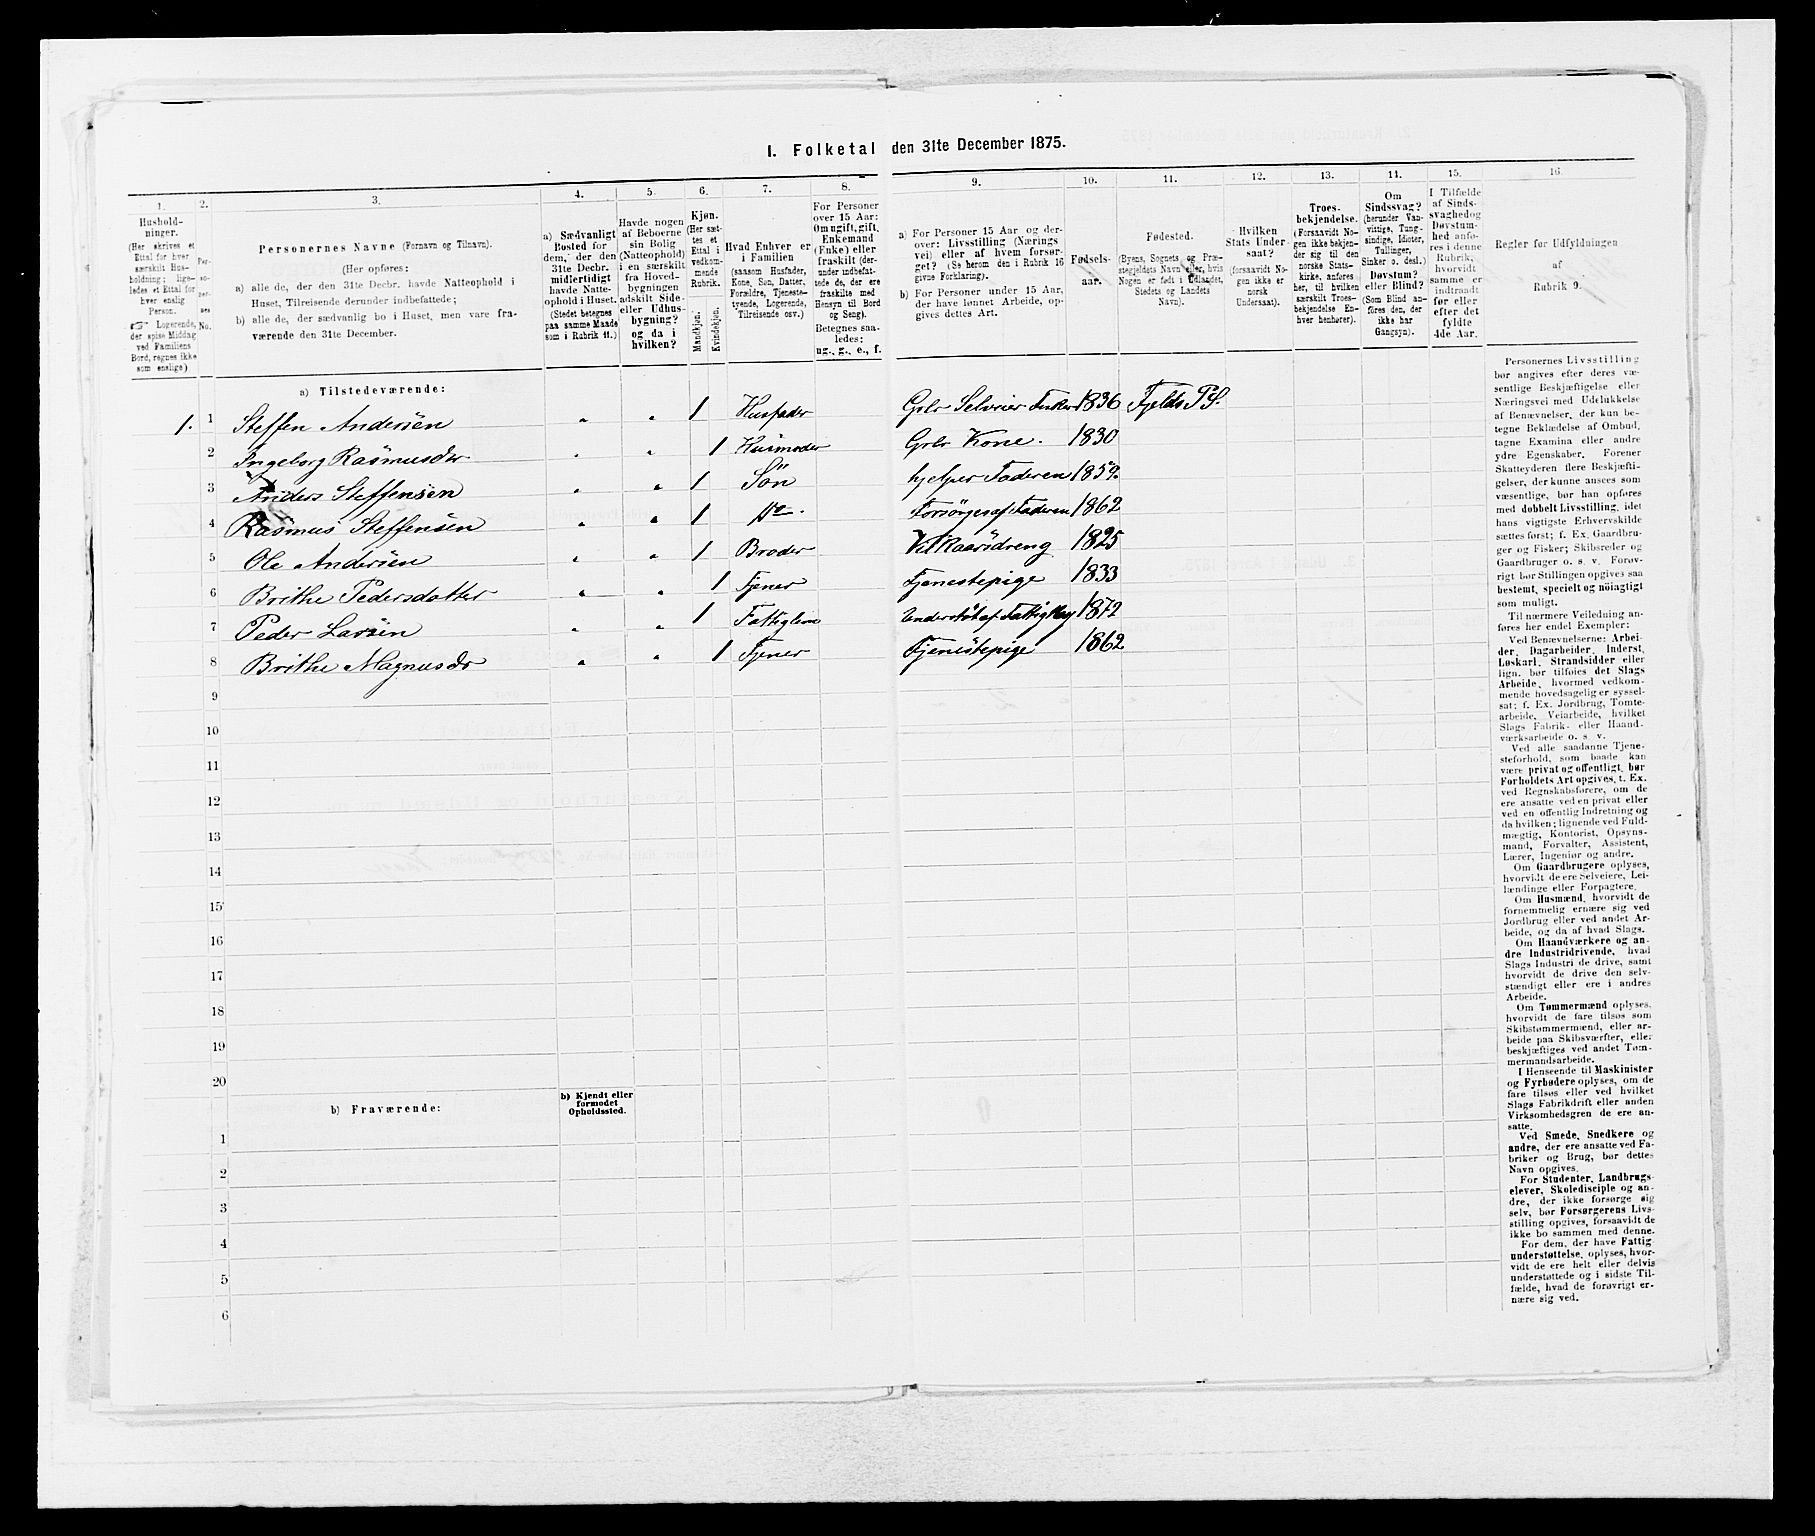 I. Folketal den 31te December 1875.
1. 2. 3. 4. 5. 6. 7. 8. 9. 10. 11. 12. 13. 14. 15. 16.
Hushold-
ninger.
(Her skrives et
Ettal for hver
særskilt Hus-
holdning; lige-
ledes et Ettal for
hver enslig
Person.
☞ Logerende,
der spise Middag
ved Familiens
Bord, regnes ikke
som enslige)
Per-
so-
ner-
nes
No.
Personernes Navne (Fornavn og Tilnavn).
(Her opføres:
a) alle de, der den 31te Decbr. havde Natteophold i
Huset, Tilreisende derunder indbefattede;
b) alle de, der sædvanlig bo i Huset, men vare fra-
værende den 31te December.
a) Sædvanligt
Bosted for
dem, der den
31te Decbr.
midlertidigt
havde Natte-
ophold i Huset.
(Stedet betegnes
paa samme Maade
som i Rubrik 11.)
Havde nogen
af Beboerne
sin Bolig
(Natteophold)
i en særskilt
fra Hoved-
bygningen
adskilt Side-
eller Udhus-
bygning?
og da i
hvilken?
Kjøn.
(Her sæt-
tes et
Ettal i
vedkom-
mende
Rubrik.
Mandkjøn.
Kvindekjøn.
Hvad Enhver er
i Familien
(saasom Husfader,
Kone, Søn, Datter,
Forældre, Tjeneste-
tyende, Logerende,
Tilreisende osv.)
For Personer
over 15 Aar:
Om ugift, gift,
Enkemand
(Enke) eller
fraskilt (der-
under indbefat-
tede de, der ere
fraskilte med
Hensyn til Bord
og Seng).
Betegnes saa-
ledes:
ug., g., e., f.
a) For Personer 15 Aar og der-
over: Livsstilling (Nærings
vei) eller af hvem forsør-
get? (Se herom den i Rubrik 16
givne Forklaring).
b) For Personer under 15 Aar,
der have lønnet Arbeide, op-
gives dettes Art.
Fødsels-
aar.
Fødested.
(Byens, Sognets og Præ-
stegjeldets Navn eller, hvis
Nogen er født i Udlandet,
Stedets og Landets
Navn).
Hvilken
Stats Under-
saat?
(forsaavidt No-
gen ikke er
norsk
Undersaat).
Troes-
bekjendelse.
(Forsaavidt No-
gen ikke bekjen-
der sig til den
norske Stats-
kirke, anføres
her, til hvilken
særskilt Troes-
bekjendelse En-
hver henhører).
Om
Sindssvag?
(herunder Van-
vittige, Tung-
sindige, Idioter,
Tullinger,
Sinker o. desl.)
Døvstum?
eller Blind?
(Som Blind an-
føres den, der
ikke har
Gangsyn).
I Tilfælde
af Sinds-
svaghed og
Døvstum-
hed anfø-
res i denne
Rubrik,
hvorvidt
samme er
indtraadt
før eller
efter det
fyldte
4de Aar.
Regler for Udfyldningen
af
Rubrik 9.
a) Tilstedeværende:
1. 1 Steffen Andersen " " 1 Husfader Grbr Selveier Fisker 1836 Fjelds Pgj.
2 Ingeborg Rasmusdr " " 1 Husmoder Grbr Kone. 1830
3 Anders Steffensen " " 1 Søn hjelper Faderen 1859
4 Rasmus Steffensen " " 1 do Forsørges af Faderen 1862
5 Ole Andersen " " 1 Broder Vilkaarsdreng 1825
6 Brithe Pedersdatter " " 1 Tjener Tjenestepige 1833
7 Peder Larsen " " 1 Fattiglem Understøt af Fattigkas 1872
8 Brithe Magnusdr " " 1 Tjener Tjenestepige 1862
9
10
11
12
13
14
15
16
17
18
19
20
b) Fraværende:
b) Kjendt eller
formodet
Opholdssted.
1
2
3
4
5
6
Personernes Livsstilling
bør angives efter deres væ-
sentlige Beskjæftigelse eller
Næringsvei med Udelukkelse
af Benævnelser, der kun be-
tegne Beklædelse af Ombud,
tagne Examina eller andre
ydre Egenskaber. Forener
Skatteyderen flere Beskjæfti-
gelser, der kunne ansees som
væsentlige, bør han opføres
med dobbelt Livsstilling, idet
hans vigtigste Erhvervskilde
sættes først; f. Ex. Gaardbru-
ger og Fisker; Skibsreder og
Gaardbruger o. s. v. Forøv-
rigt bør Stillingen opgives saa
bestemt, specielt og nøiagtigt
som muligt.
Til nærmere Veiledning an-
føres her endel Exempler:
Ved Benævnelserne: Arbei-
der, Dagarbeider, Inderst,
Løskarl, Strandsidder eller
lign. bør tilføies det Slags
Arbeide, hvormed vedkom-
mende hovedsagelig er syssel-
sat; f. Ex. Jordbrug, Tomte-
arbeide, Veiarbeide, hvilket
Slags Fabrik- eller Haand-
værksarbeide o. s. v.
Ved alle saadanne Tjene-
steforhold, som baade kan
være privat og offentligt, bør
Forholdets Art opgives, t. Ex.
ved Regnskabsførere, om de
ere ansatte ved en privat eller
ved en offentlig Indretning og
da hvilken; lignende ved Fuld-
mægtig, Kontorist, Opsyns-
mand, Forvalter, Assistent,
Lærer, Ingeniør og andre.
Om Gaardbrugere oplyses,
hvorvidt de ere Selveiere, Lei-
lændinge eller Forpagtere.
Om Husmænd, hvorvidt de
fornemmelig ernære sig ved
Jordbrug eller ved andet Ar-
beide, og da af hvad Slags.
Om Haandværkere og an-
dre Industridrivende, hvad
Slags Industri de drive, samt
hvorvidt de drive den selv-
stændigt eller ere i andres
Arbeide.
Om Tømmermænd oplyses,
hvorvidt de fare tilsøs som
Skibstømmermænd, eller ar-
beide paa Skibsværfter, eller
beskjæftiges ved andet Tøm-
mermandsarbeide.
I Henseende til Maskinister
og Fyrbødere oplyses, om de
fare tilsøs eller ved hvilket
Slags Fabrikdrift eller anden
Virksomhedsgren de ere an-
satte.
Ved Smede, Snedkere og
andre, der ere ansatte ved Fa-
briker og Brug, bør dettes
Navn opgives.
For Studenter, Landbrugs-
elever, Skoledisciple og an-
dre, der ikke forsørge sig
selv, bør Forsørgerens Livs-
stilling opgives, forsaavidt de
ikke bo sammen med denne.
For dem, der have Fattig-
understøttelse, oplyses, hvor-
vidt de ere helt eller delvis
understøttede og i sidste Til-
fælde, hvad de forøvrigt er-
nære sig ved.